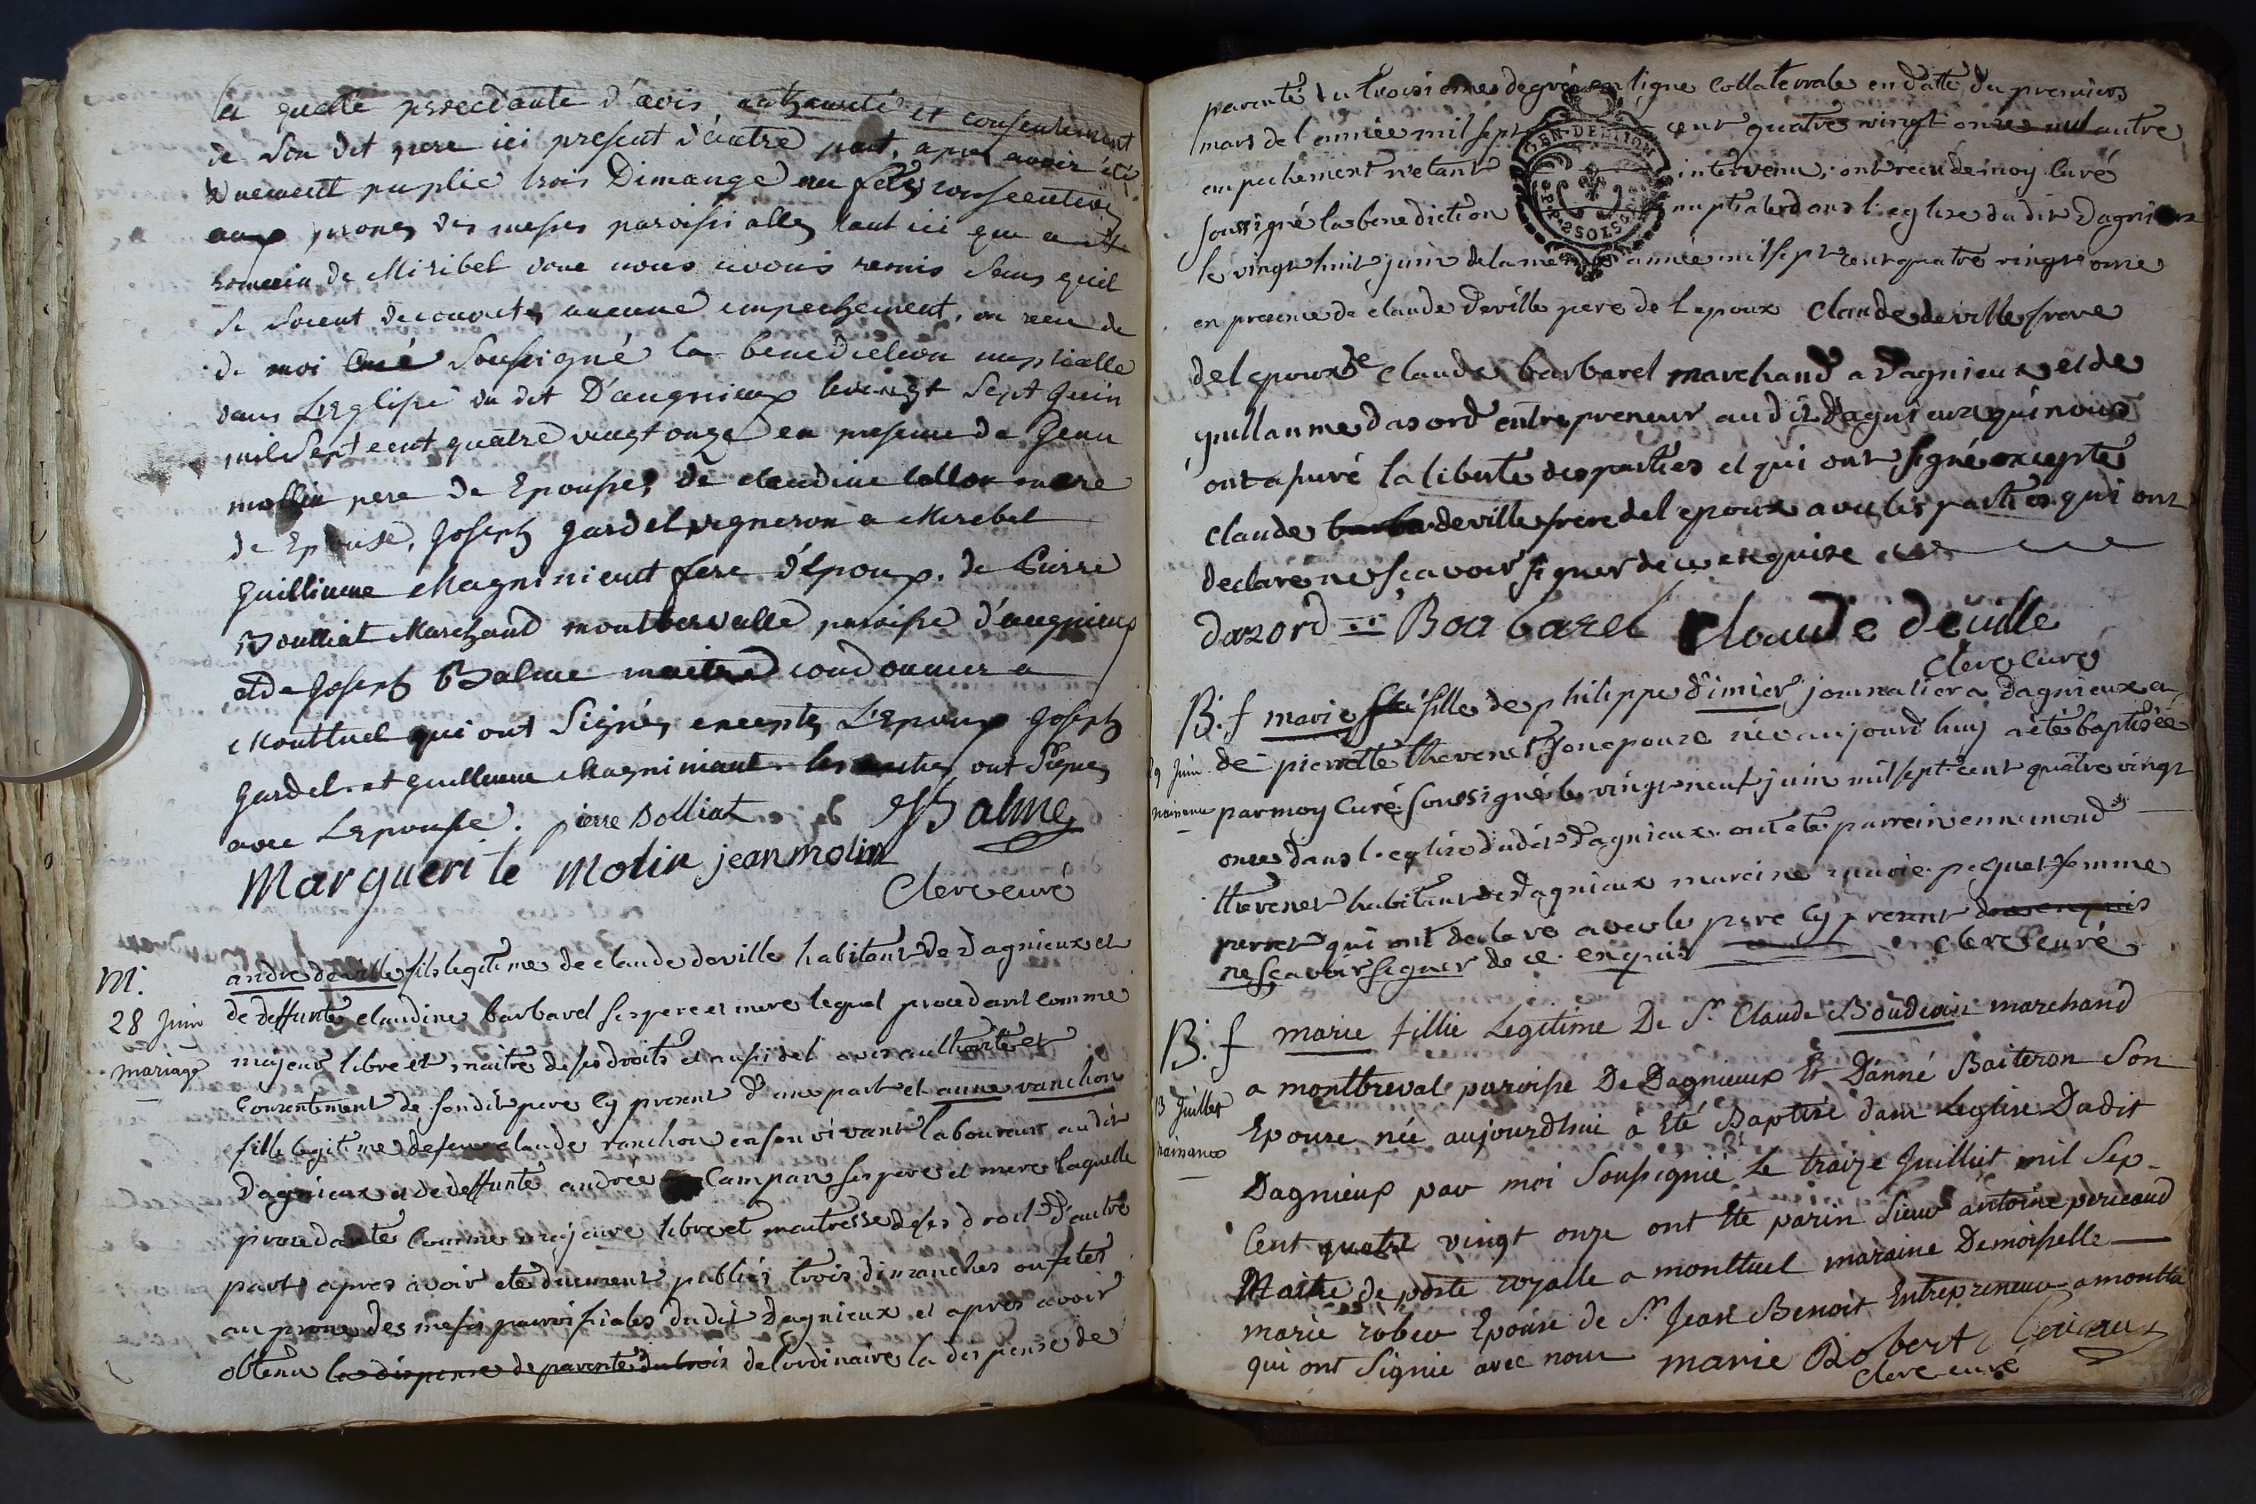 la quelle procedante d'avis authorité et consentement
de son dit pere ici present d'autre part, apres avoir été
duement puplié trois Dimange ou fetes consecutives
aux prones des messes paroissialles tant ici que
de Miribel dont nous avons remis sans quil
se soient decouvertes aucune empechement, on recu de
de moi Curé Soussigné la benediction nuptialle
dans L'Eglise du dit D'augnieux le vingt Sept Juin
mil Sept cent quatre vingt onze en presence de Jean
mollin pere de Epouse, de claudine mere
de Epouse, Joseph gardel vigneron a Mirebel
Guilliaume Magninient fere d'Epoux, de Pierre
Boulliat Marchand montbervalle paroisse d'augnieux
et de Joseph Balme maitre cordonnier a
Monttuel qui ont Signés exceptes L'Epoux Joseph
gardel et guillaume Magniniant les autres ont Signes
avec L'Epouse. pierre Bolliat JBalme
Margueri te Molin jean molin
Clerc curé
M. andre deville fils legitime de claude deville habitant de Dagnieux et
28 Juin de deffunte claudine barbarel ses pere et mere lequel procedant comme
mariage majeur libre et maitre de ses droits et aussi del avis authorité et
Consentement de son dit pere cy present d'une part et anne ranchon
fille legitime defeu claude ranchon en son vivant laboureur au dit
Dagnieux et de deffunte andrée Campan ses pere et mere laquelle
procedante Comme majeure libre et maitresse de ses droits d'autre
part, apres avoir eté duement publiés trois dimanches ou fetes
au prone des messes paroissiales du dit Dagnieux et apres avoir
obtenu la dispense de parenté du trois de l'ordinaire la dispense de
parenté du troisieme degré en ligne collaterrale en datte du premiers
mars de l'année mil sept cent quatre vingt onze nul autre
empechement n'etant intervenu, ont recu de moy Curé
soussigné la benediction nuptiale dans l'eglise du dit Dagnieux
GEN. DE LYON
le vingt huit juin de la meme année mil sept cent quatre vingt onze
en presence de claude deville pere de l epoux Claude deville frere
del epoux de claude barbarel marchand a Dagnieux et de
guillaume dasord entrepreneur au dit Dagnieux qui nous
ont assuré la liberte des parties et qui ont signé excepté
claude barba deville frere del epoux avec les parties qui ont
declaré ne scavoir signer de ce enquise
dazord Bar barel Claude deville
Clerc Curé
B. f marie fille de philippe dimier journalier a Dagnieux et
29 Juin de pierrette thevenet son epouze née aujourd huy a été baptisée
naisance par moy Curé soussigné le vingt neuf juin mil sept cent quatre vingt
onze dans l'eglise du dit Dagnieux ont eté parrein ennemond
thevenet habitant de Dagnieux mareine marie pequet femme
perret qui ont declaré avec le pere cy present
ne scavoir signer de ce enquis Clerc curé
B. f marie fillie Legitime De Sr Claude Boudoin marchand
a montbreval paroisse De Dagnieux Et Danné Baiteron Son
13 Juillet Epouze née aujourdhui a Eté Baptisé dans Leglise Dudit
naisance Dagnieux par moi Sousignié Le traize Juilliet mil Sep-
Cent quatre vingt onze ont Ete parin Sieur antoine pericaud
Maitre de poste royalle a monttuel maraine Demoisselle
marie robert Epouse de Sr Jean Benoit Entrepreneur a monttuel
qui ont Signié avec nous marie Robert
Clerc curé